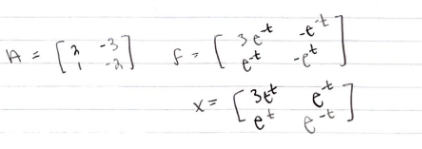 A = [2 -3; 1 -2] f = [3e^t -e^-t; e^-t -e^t]
x = [3e^t e^-t; e^t e^-t]